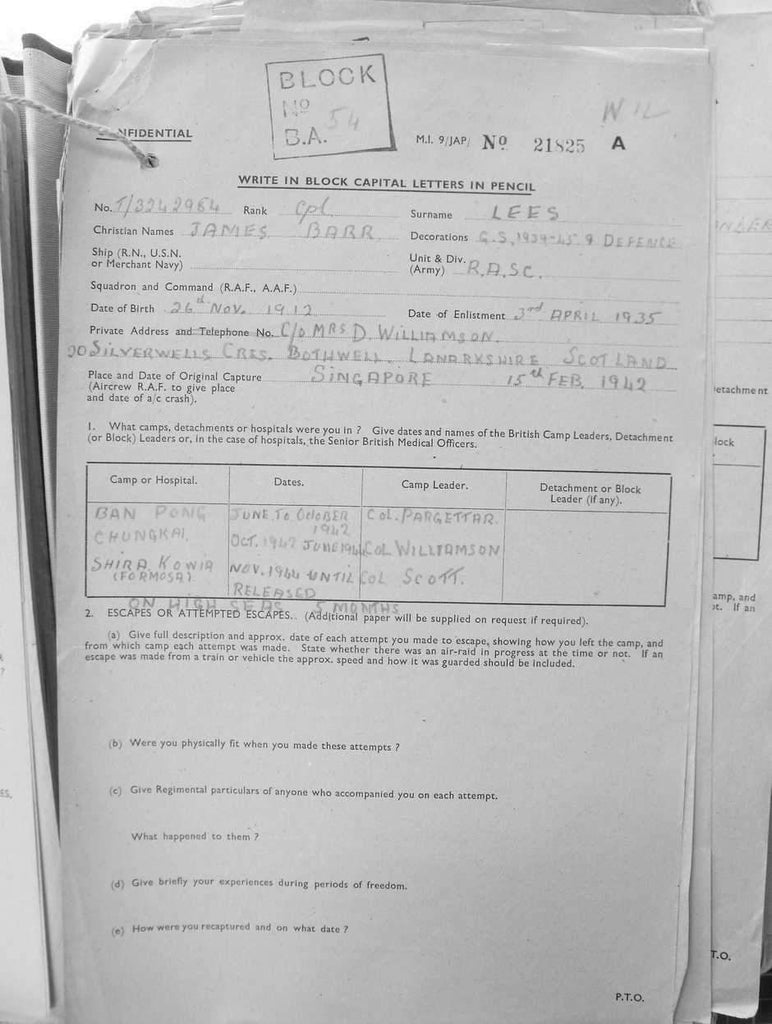 BLOCK
No 54
B.A.
WIL
NFIDENTIAL
M.I. 9/JAP/ No 21825 A
WRITE IN BLOCK CAPITAL LETTERS IN PENCIL
No. T/3242964 Rank Cpl. Surname LEES
Christian Names JAMES BARR Decorations G.S. 1939-45 & DEFENCE
Ship (R.N., U.S.N. or Merchant Navy)
Unit & Div. (Army) R.A.S.C.
Squadron and Command (R.A.F., A.A.F.)
Date of Birth 26th Nov. 1912 Date of Enlistment 3rd APRIL 1935
Private Address and Telephone No. C/o MRS D. WILLIAMSON.
SILVERWELLS CRES. BOTHWELL. LANARKSHIRE SCOTLAND
Place and Date of Original Capture SINGAPORE 15th FEB. 1942
(Aircrew R.A.F. to give place
and date of a/c crash).
1. What camps, detachments or hospitals were you in ? Give dates and names of the British Camp Leaders, Detachment
(or Block) Leaders or, in the case of hospitals, the Senior British Medical Officers.
Camp or Hospital. Dates. Camp Leader. Detachment or Block Leader (if any).
BAN PONG JUNE TO OCTOBER 1942 COL. PARGETTAR.
CHUNGKAI. OCT. 1942 JUNE 194 COL WILLIAMSON
SHIRA KOWIA (FORMOSA) NOV. 1944 UNTIL RELEASED COL SCOTT.
ON HIGH SEAS 5 MONTHS
2. ESCAPES OR ATTEMPTED ESCAPES. (Additional paper will be supplied on request if required).
(a) Give full description and approx. date of each attempt you made to escape, showing how you left the camp, and
from which camp each attempt was made. State whether there was an air-raid in progress at the time or not. If an
escape was made from a train or vehicle the approx. speed and how it was guarded should be included.
(b) Were you physically fit when you made these attempts ?
(c) Give Regimental particulars of anyone who accompanied you on each attempt.
What happened to them ?
(d) Give briefly your experiences during periods of freedom.
(e) How were you recaptured and on what date ?
P.T.O.
etachment
lock
amp, and
If an
T.O.